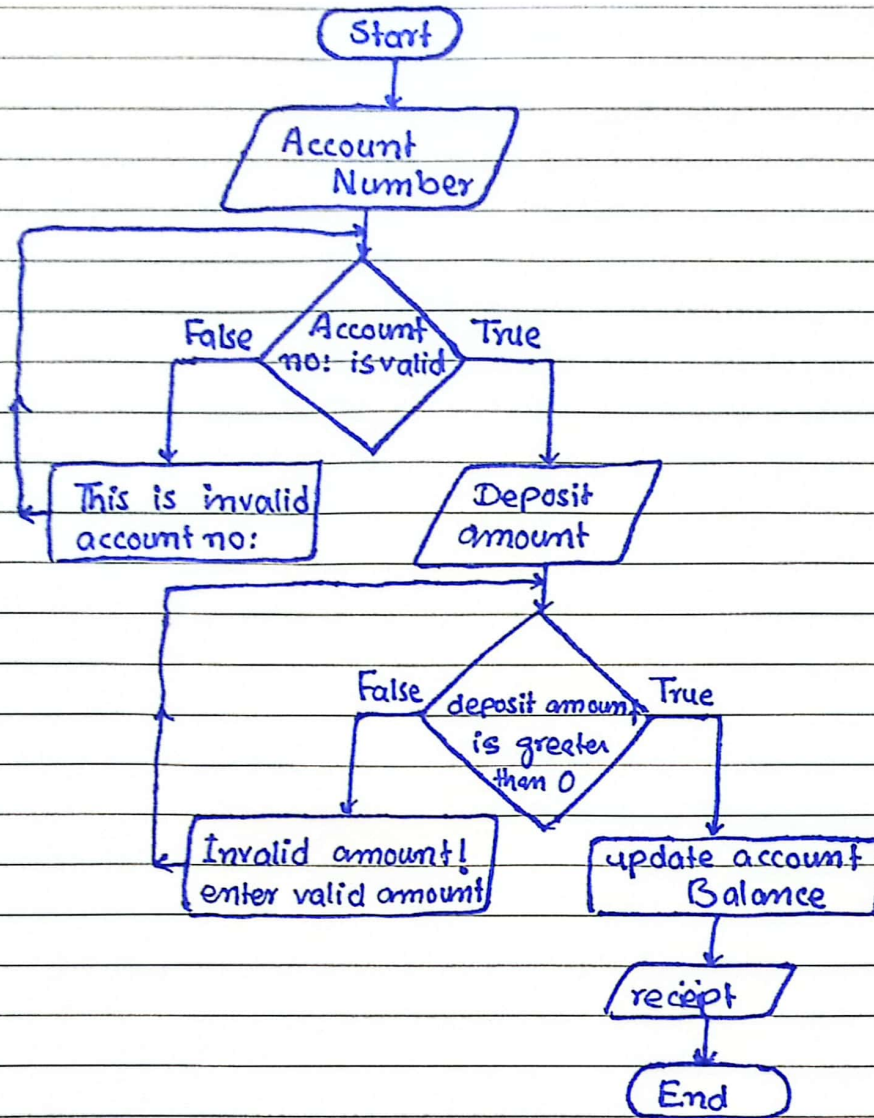 Start
Account
Number
False
Account
no: is valid
True
This is invalid
account no:
Deposit
amount
False
deposit amount
is greater
than 0
True
Invalid amount!
enter valid amount
update account
Balance
receipt
End